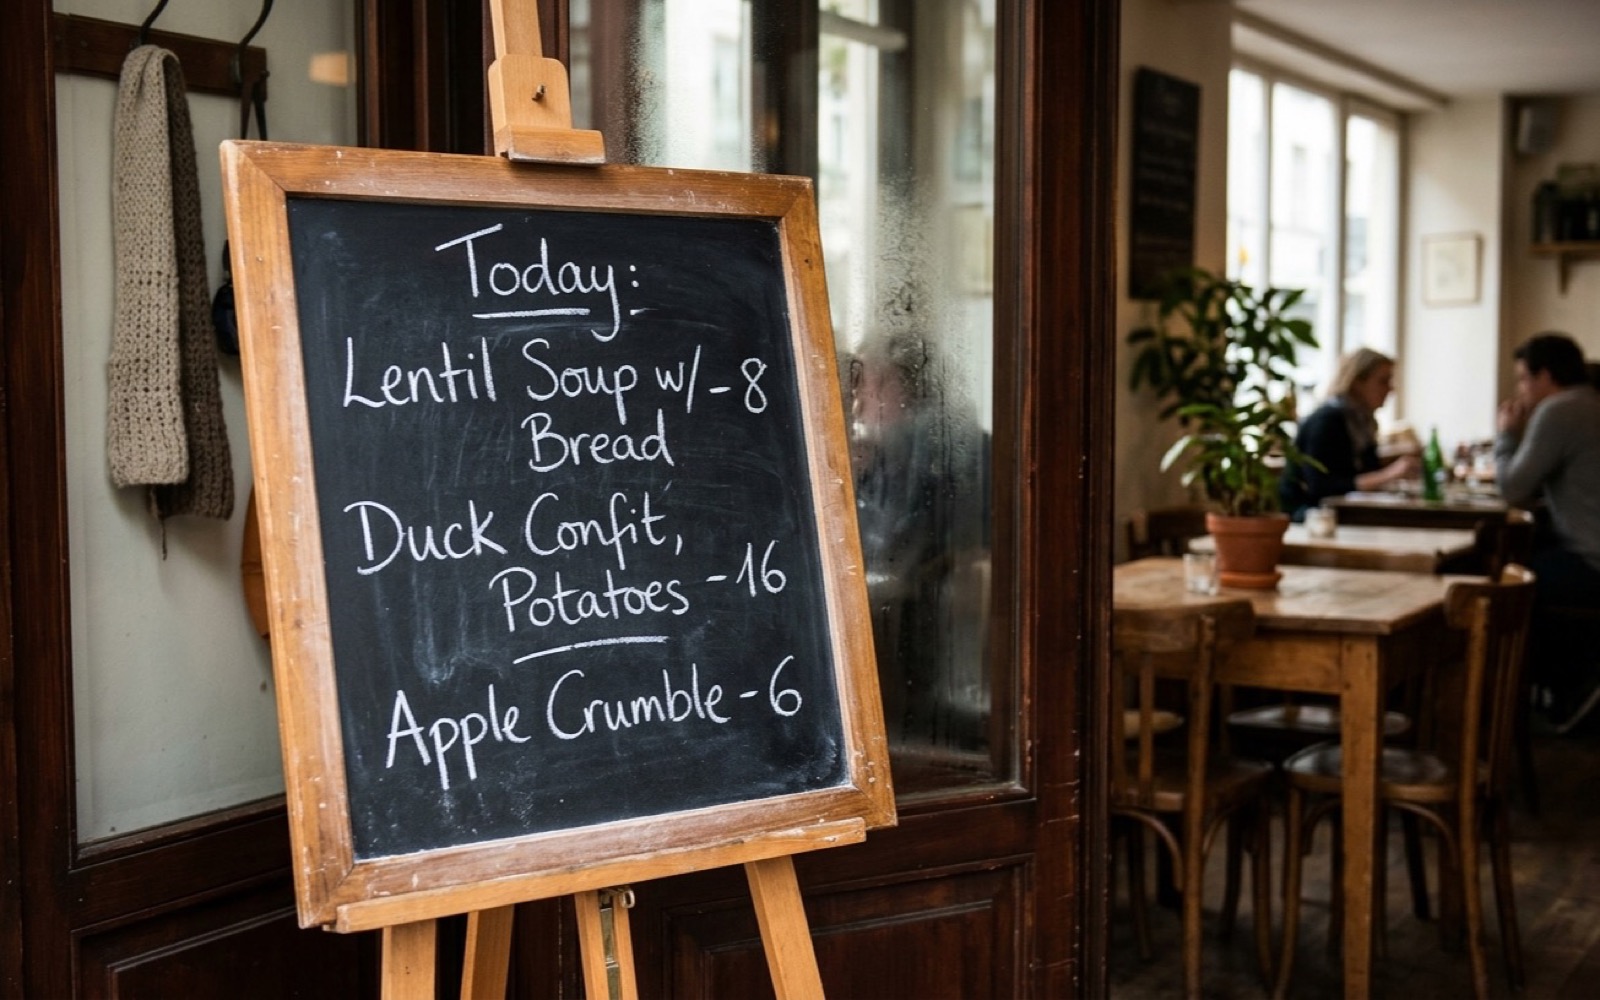 Today:
Lentil Soup w/ - 8
Bread
Duck Confit,
Potatoes - 16
Apple Crumble - 6